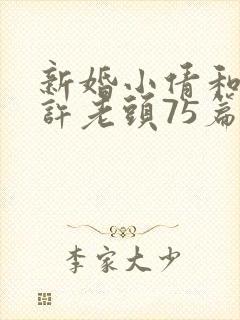 新婚小倩和
許老頭75篇
李家大少